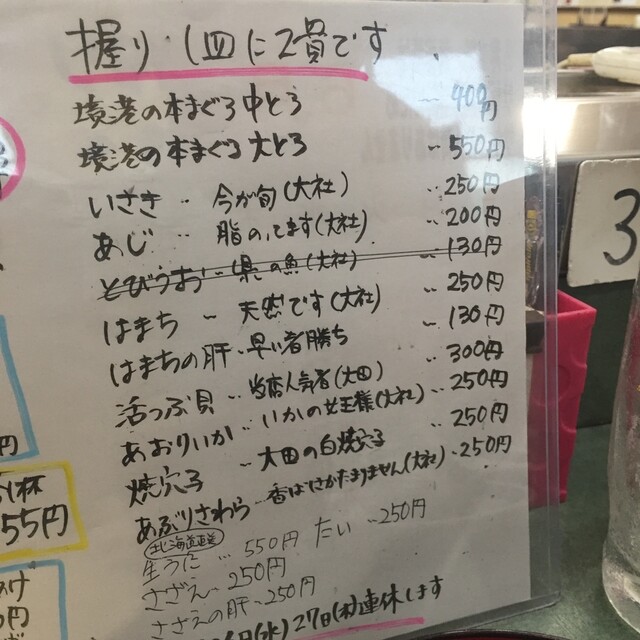 握り 1皿に2貫です
境港の本まぐろ中とろ ‥ 400円
境港の本まぐろ大とろ ‥ 550円
いさき ‥ 今が旬(大社) ‥ 250円
あじ ‥ 脂のってます(大社) ‥ 200円
とびうお ‥ 県の魚(大社) ‥ 130円
はまち ‥ 天然です(大社) ‥ 250円
はまちの肝 ‥ 早い者勝ち ‥ 130円
活つぶ貝 ‥ 当店人気者(大田) ‥ 300円
あおりいか ‥ いかの女王様(大社) ‥ 250円
焼穴子 ‥ 大田の白焼穴子 ‥ 250円
あぶりさわら ‥ 香ばしさがたまりません(大社) ‥ 250円
北海道産
生うに … 550円 たい ‥ 250円
さざえ ‥ 250円
さざえの肝 ‥ 250円
6日(水) 27日(木)連休します
3
円
杯
55円
け
円